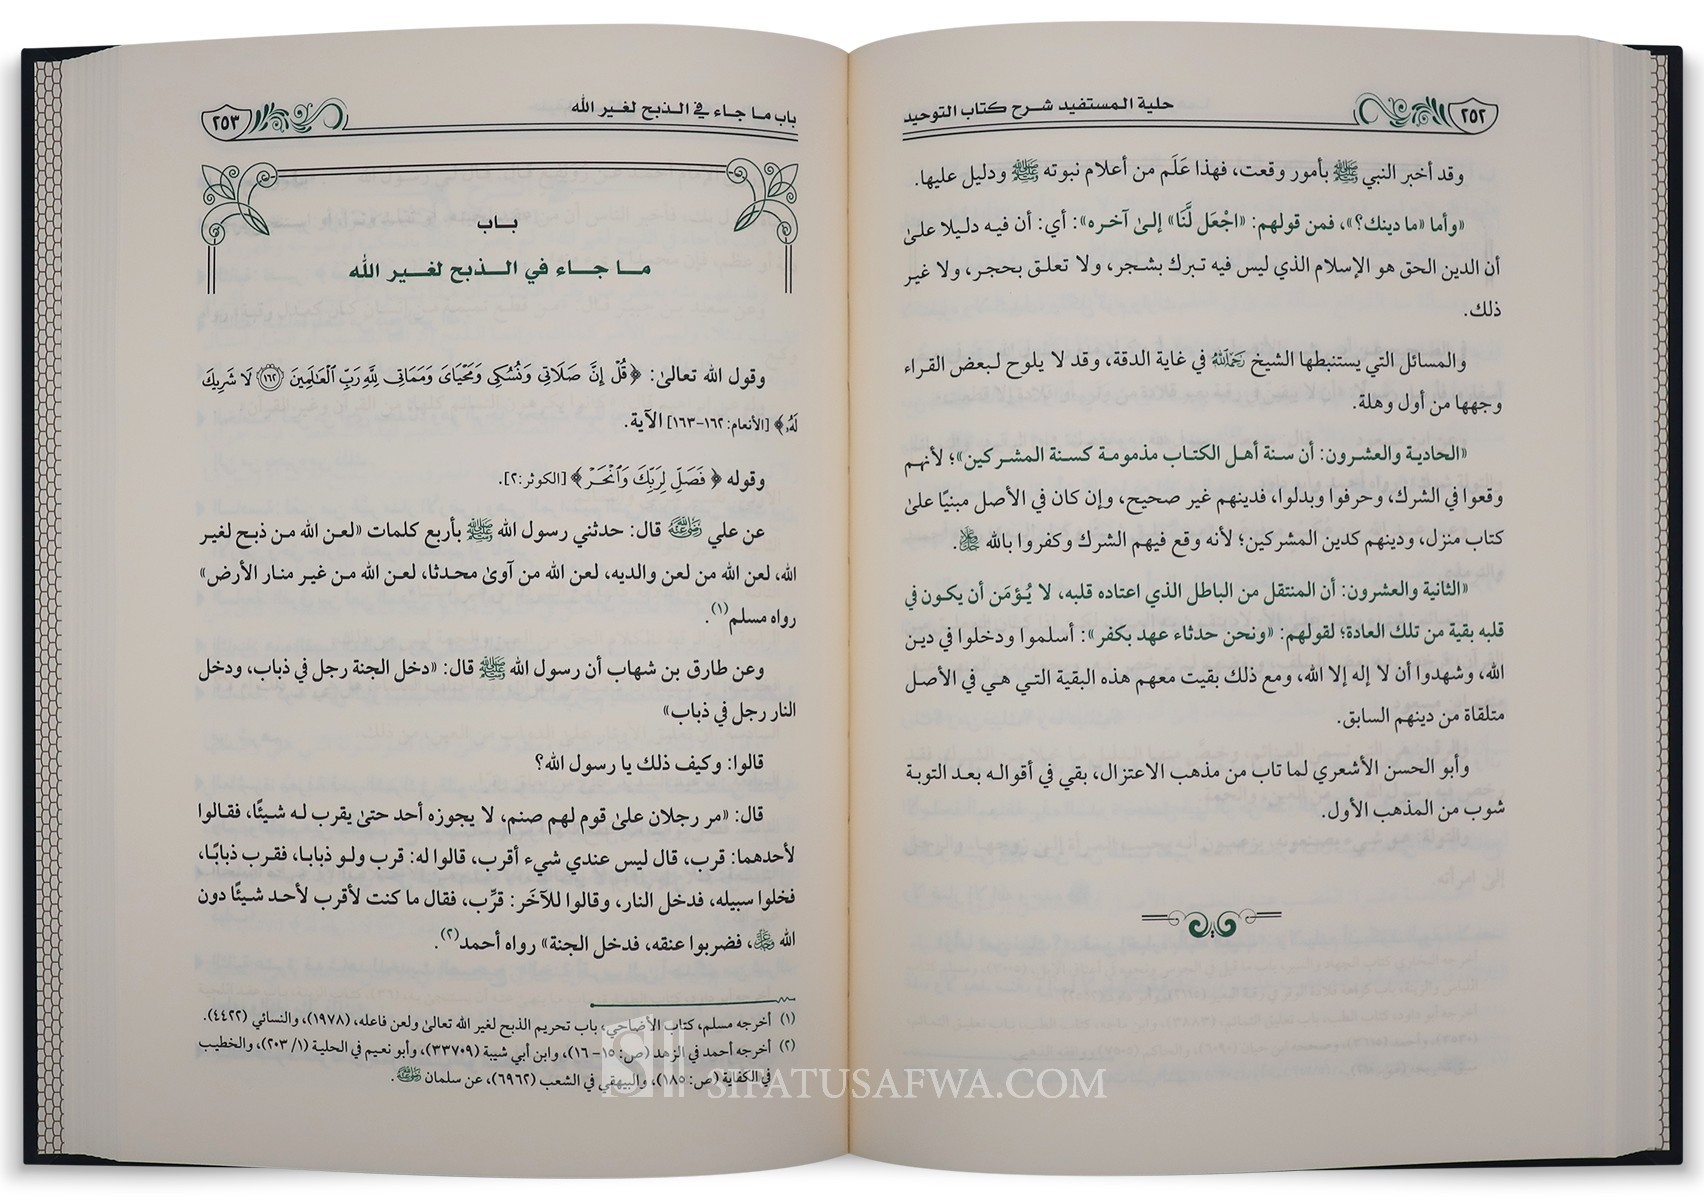 ٢٥٢
حلية المستفيد شرح كتاب التوحيد
وقد أخبر النبي ﷺ بأمور وقعت، فهذا عَلَم من أعلام نبوته ﷺ ودليل عليها.
«وأما «ما دينك؟»، فمن قولهم: «اجْعَل لَّنَا» إلىٰ آخره»: أي: أن فيه دليلا علىٰ
أن الدين الحق هو الإسلام الذي ليس فيه تبرك بشجر، ولا تعلق بحجر، ولا غير
ذلك.
والمسائل التي يستنبطها الشيخ رحمه الله في غاية الدقة، وقد لا يلوح لبعض القراء
وجهها من أول وهلة.
«الحادية والعشرون: أن سنة أهل الكتاب مذمومة كسنة المشركين»؛ لأنهم
وقعوا في الشرك، وحرفوا وبدلوا، فدينهم غير صحيح، وإن كان في الأصل مبنيًا علىٰ
كتاب منزل، ودينهم كدين المشركين؛ لأنه وقع فيهم الشرك وكفروا بالله ﷻ.
«الثانية والعشرون: أن المنتقل من الباطل الذي اعتاده قلبه، لا يُؤمَن أن يكون في
قلبه بقية من تلك العادة؛ لقولهم: «ونحن حدثاء عهد بكفر»: أسلموا ودخلوا في دين
الله، وشهدوا أن لا إله إلا الله، ومع ذلك بقيت معهم هذه البقية التي هي في الأصل
متلقاة من دينهم السابق.
وأبو الحسن الأشعري لما تاب من مذهب الاعتزال، بقي في أقواله بعد التوبة
شوب من المذهب الأول.
باب ما جاء في الذبح لغير الله
٢٥٣
باب
ما جاء في الذبح لغير الله
وقول الله تعالىٰ: ﴿قُلْ إِنَّ صَلَاتِي وَنُسُكِي وَمَحْيَايَ وَمَمَاتِي لِلَّهِ رَبِّ ٱلْعَالَمِينَ ١٦٢ لَا شَرِيكَ
لَهُۥ﴾ [الأنعام: ١٦٢-١٦٣] الآية.
وقوله ﴿فَصَلِّ لِرَبِّكَ وَٱنْحَرْ﴾ [الكوثر:٢].
عن علي رضي الله عنه قال: حدثني رسول الله ﷺ بأربع كلمات «لعن الله من ذبح لغير
الله، لعن الله من لعن والديه، لعن الله من آوىٰ محدثا، لعن الله من غير منار الأرض»
رواه مسلم(١).
وعن طارق بن شهاب أن رسول الله ﷺ قال: «دخل الجنة رجل في ذباب، ودخل
النار رجل في ذباب»
قالوا: وكيف ذلك يا رسول الله؟
قال: «مر رجلان علىٰ قوم لهم صنم، لا يجوزه أحد حتىٰ يقرب له شيئًا، فقالوا
لأحدهما: قرب، قال ليس عندي شيء أقرب، قالوا له: قرب ولو ذبابا، فقرب ذبابًا،
فخلوا سبيله، فدخل النار، وقالوا للآخَر: قرِّب، فقال ما كنت لأقرب لأحد شيئًا دون
الله ﷻ، فضربوا عنقه، فدخل الجنة» رواه أحمد(٢).
(١) أخرجه مسلم، كتاب الأضاحي، باب تحريم الذبح لغير الله تعالىٰ ولعن فاعله، (١٩٧٨)، والنسائي (٤٤٢٢).
(٢) أخرجه أحمد في الزهد (ص: ١٥- ١٦)، وابن أبي شيبة (٣٣٧٠٩)، وأبو نعيم في الحلية (١/ ٢٠٣)، والخطيب
في الكفاية (ص: ١٨٥)، والبيهقي في الشعب (٦٩٦٢)، عن سلمان رضي الله عنه.
SIFATUSAFWA.COM